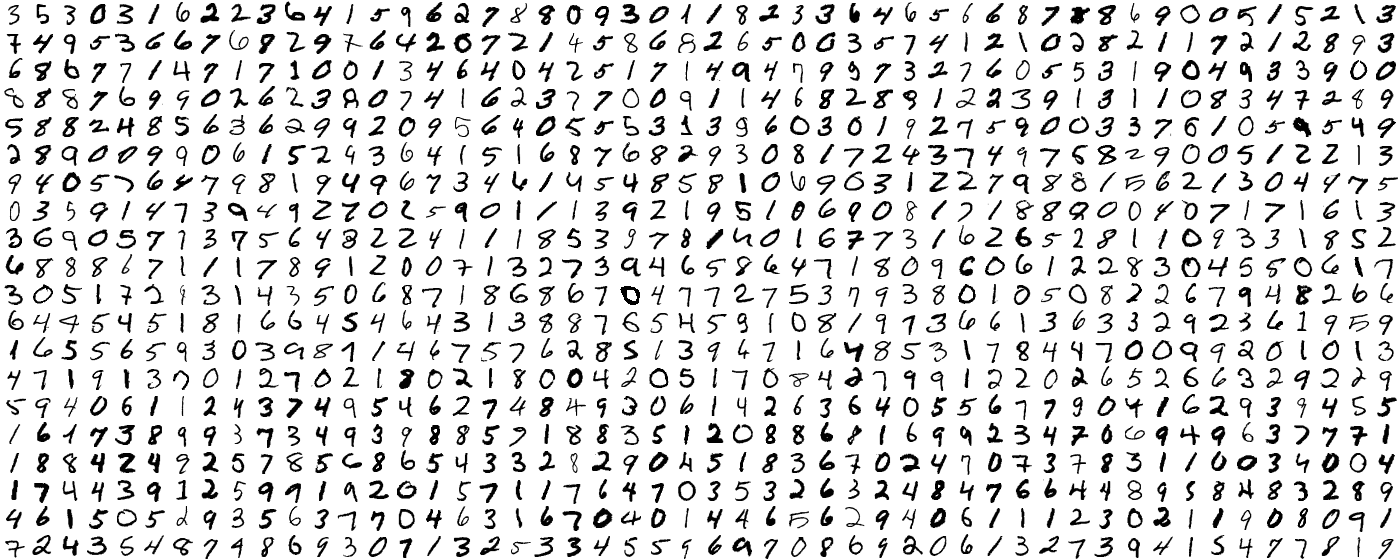 3 5 3 0 3 1 6 2 2 3 6 4 1 5 9 6 2 7 8 8 0 9 3 0 1 1 8 2 3 3 6 4 6 5 6 6 8 7 8 8 6 9 0 0 5 1 5 2 1 3
7 4 9 5 3 6 6 7 6 8 2 9 7 6 4 2 0 7 2 1 4 5 8 6 8 2 6 5 0 0 3 5 7 4 1 2 1 0 2 8 2 1 1 7 2 1 2 8 9 3
6 8 6 7 7 1 4 7 1 7 1 0 0 1 3 4 6 4 0 4 2 5 1 7 1 4 9 4 7 9 9 7 3 2 7 6 0 5 5 3 1 9 0 4 9 3 3 9 0 0
8 8 8 7 6 9 9 0 2 6 2 3 8 0 7 4 1 6 2 3 7 7 0 0 9 1 1 4 6 8 2 8 9 1 2 2 3 9 1 3 1 1 0 8 3 4 7 2 8 9
5 8 8 2 4 8 5 6 3 6 2 9 9 2 0 9 5 6 4 0 5 5 5 3 1 3 9 6 0 3 0 1 9 2 7 5 9 0 0 3 3 7 6 1 0 5 9 5 4 9
2 8 9 0 0 9 9 0 6 1 5 2 9 3 6 4 1 5 1 6 8 7 6 8 2 9 3 0 8 1 7 2 4 3 7 4 9 7 6 8 2 9 0 0 5 1 2 2 1 3
9 4 0 5 7 6 4 7 9 8 1 9 4 9 6 7 3 4 6 1 4 5 4 8 5 8 1 0 6 9 0 3 1 2 2 7 9 8 8 1 5 6 2 1 3 0 4 4 7 5
0 3 5 9 1 4 7 3 9 4 9 2 7 0 2 5 9 0 1 1 1 3 9 2 1 9 5 1 0 6 9 0 8 1 7 1 8 8 9 0 0 4 0 7 1 7 1 6 1 3
3 6 9 0 5 7 1 3 7 5 6 4 8 2 2 4 1 1 1 8 5 3 9 7 8 1 4 0 1 6 7 7 3 1 6 2 6 5 2 8 1 1 0 9 3 3 1 8 5 2
6 8 8 8 6 7 1 1 1 7 8 9 1 2 0 0 7 1 3 2 7 3 9 4 6 5 8 6 4 7 1 8 0 9 6 0 6 1 2 2 8 3 0 4 5 5 0 6 1 7
3 0 5 1 7 2 9 3 1 4 3 5 0 6 8 7 1 8 6 8 6 7 0 4 7 7 2 7 5 3 7 9 3 8 0 1 0 5 0 8 2 2 6 7 9 4 8 2 6 6
6 4 4 5 4 5 1 8 1 6 6 4 5 4 6 4 3 1 3 8 8 7 6 5 4 5 9 1 0 8 1 9 7 3 6 6 1 3 6 3 3 2 9 2 3 6 1 9 5 9
1 6 5 5 6 5 9 3 0 3 9 8 7 1 4 6 7 5 7 6 2 8 5 1 3 9 4 7 1 6 4 8 5 3 1 7 8 4 4 7 0 0 9 9 2 0 1 0 1 3
4 7 1 9 1 3 7 0 1 2 7 0 2 1 8 0 2 1 8 0 0 4 2 0 5 1 7 0 8 4 2 7 9 9 1 2 2 0 2 6 5 2 6 6 3 2 9 2 2 9
5 9 4 0 6 1 1 2 4 3 7 4 9 5 4 6 2 7 4 8 4 9 3 0 6 1 4 2 6 3 6 4 0 5 5 6 7 7 9 0 4 1 6 2 9 3 9 4 5 5
1 6 1 7 3 8 9 9 3 7 3 4 9 3 9 8 8 5 7 1 8 8 3 5 1 2 0 8 8 6 8 1 6 9 9 2 3 4 7 0 6 9 4 9 6 3 7 7 7 1
1 8 8 4 2 4 9 2 5 7 8 5 6 8 6 5 4 3 3 2 8 2 9 0 4 5 1 8 3 6 7 0 2 4 7 0 7 3 7 8 3 1 1 0 0 3 4 0 0 4
1 7 4 4 3 9 1 2 5 9 9 1 9 2 0 1 5 7 1 1 7 6 4 7 0 3 5 3 2 6 3 2 4 8 4 7 6 6 4 4 8 9 5 8 4 8 3 2 8 9
4 6 1 5 0 5 2 9 3 5 6 3 7 7 0 4 6 3 1 6 7 0 4 0 1 4 4 6 5 6 2 9 4 0 6 1 1 1 2 3 0 2 1 1 9 0 8 0 9 1
7 2 4 3 5 4 8 7 4 8 6 9 3 0 7 1 3 2 5 3 3 4 5 5 9 6 9 7 0 8 6 9 2 0 6 1 3 2 7 3 9 4 1 5 4 7 7 8 1 9